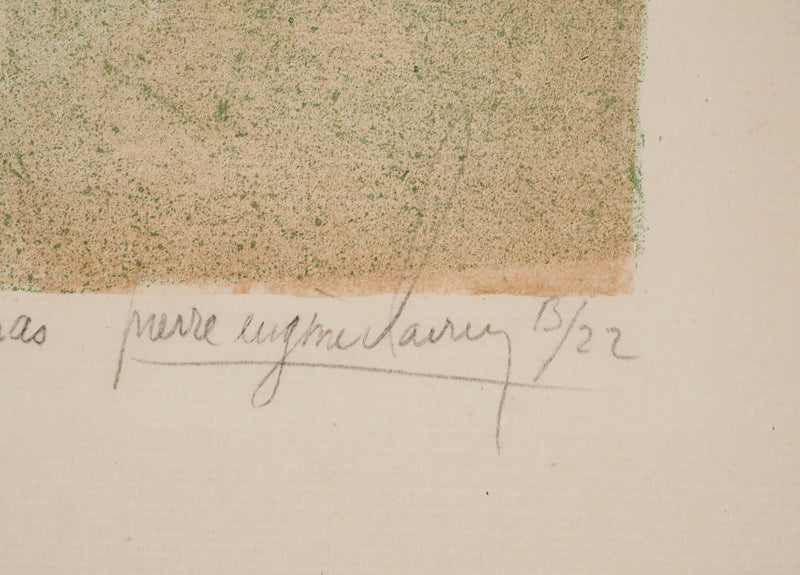 as pierre eugène Clairin 13/22